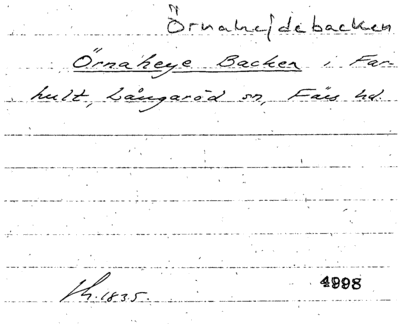 Örnahejdebacken
Örnaheye Backen i Far-
hult, Långaröd sn, Färs hd.
4998
1835.